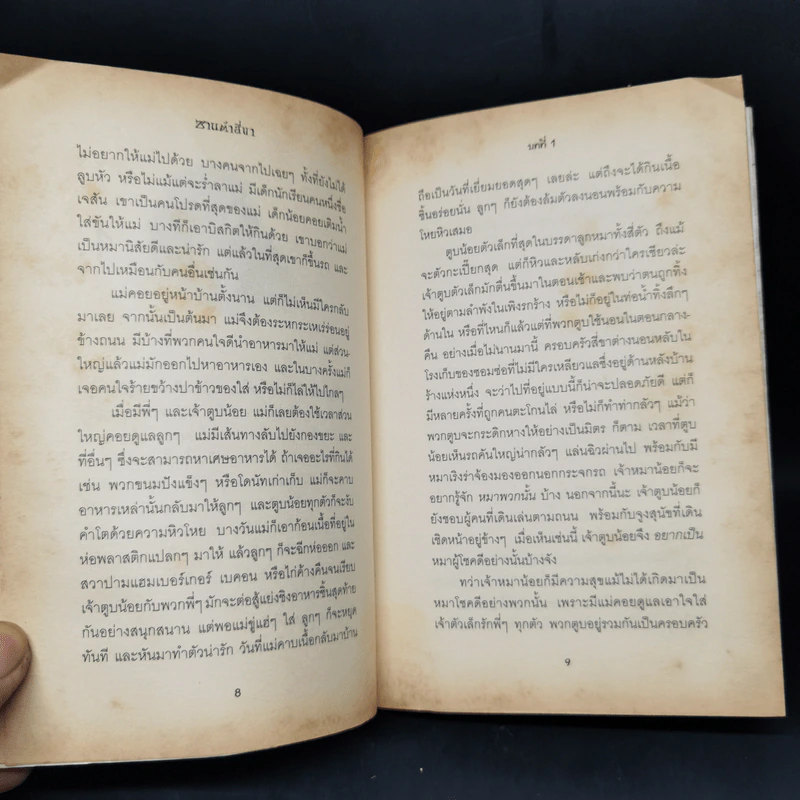 ซานต๋าสี่ขา
ไม่อยากให้แม่ไปด้วย บางคนจากไปเฉยๆ ทั้งที่ยังไม่ได้
ลูบหัว หรือไม่แม้แต่จะร่ำลาแม่ มีเด็กนักเรียนคนหนึ่งชื่อ
เจสัน เขาเป็นคนโปรดที่สุดของแม่ เด็กน้อยคอยเติมน้ำ
ใส่ขันให้แม่ บางทีก็เอาบิสกิตให้กินด้วย เขาบอกว่าแม่
เป็นหมานิสัยดีและน่ารัก แต่แล้วในที่สุดเขาก็ขึ้นรถ และ
จากไปเหมือนกับคนอื่นเช่นกัน
แม่คอยอยู่หน้าบ้านตั้งนาน แต่ก็ไม่เห็นมีใครกลับ
มาเลย จากนั้นเป็นต้นมา แม่จึงต้องระหกระเหเร่ร่อนอยู่
ข้างถนน มีบ้างที่พวกคนใจดีนำอาหารมาให้แม่ แต่ส่วน-
ใหญ่แล้วแม่มักออกไปหาอาหารเอง และในบางครั้งแม่ก็
เจอคนใจร้ายขว้างปาข้าวของใส่ หรือไม่ก็ไล่ให้ไปไกลๆ
เมื่อมีพี่ๆ และเจ้าตูบน้อย แม่ก็เลยต้องใช้เวลาส่วน
ใหญ่คอยดูแลลูกๆ แม่มีเส้นทางลับไปยังกองขยะ และ
ที่อื่นๆ ซึ่งจะสามารถหาเศษอาหารได้ ถ้าเจออะไรที่กินได้
เช่น พวกขนมปังแข็งๆ หรือโดนัทเก่าเก็บ แม่ก็จะคาบ
อาหารเหล่านั้นกลับมาให้ลูกๆ และตูบน้อยทุกตัวก็จะงับ
คำโตด้วยความหิวโหย บางวันแม่ก็เอาก้อนเนื้อที่อยู่ใน
ห่อพลาสติกแปลกๆ มาให้ แล้วลูกๆ ก็จะฉีกห่อออก และ
สวาปามแฮมเบอร์เกอร์ เบคอน หรือไก่ค้างคืนจนเรียบ
เจ้าตูบน้อยกับพวกพี่ๆ มักจะต่อสู้แย่งชิงอาหารชิ้นสุดท้าย
กันอย่างสนุกสนาน แต่พอแม่ขู่แฮ่ๆ ใส่ ลูกๆ ก็จะหยุด
ทันที และหันมาทำตัวน่ารัก วันที่แม่คาบเนื้อกลับมาบ้าน
8
บทที่ 1
ถือเป็นวันที่เยี่ยมยอดสุดๆ เลยล่ะ แต่ถึงจะได้กินเนื้อ
ชิ้นอร่อยนั่น ลูกๆ ก็ยังต้องล้มตัวลงนอนพร้อมกับความ
โหยหิวเสมอ
ตูบน้อยตัวเล็กที่สุดในบรรดาลูกหมาทั้งสี่ตัว ถึงแม้
จะตัวกะเปี๊ยกสุด แต่ก็หิวและหลับเก่งกว่าใครเชียวล่ะ
เจ้าตูบตัวเล็กมักตื่นขึ้นมาในตอนเช้าและพบว่าตนถูกทิ้ง
ให้อยู่ตามลำพังในเพิงรกร้าง หรือไม่ก็อยู่ในท่อน้ำทิ้งลึกๆ
ด้านใน หรือที่ไหนก็แล้วแต่ที่พวกตูบใช้นอนในตอนกลาง-
คืน อย่างเมื่อไม่นานมานี้ ครอบครัวสี่ขาต่างนอนหลับใน
โรงเก็บของซอมซ่อที่ไม่มีใครเหลียวแลซึ่งอยู่ด้านหลังบ้าน
ร้างแห่งหนึ่ง จะว่าไปที่อยู่แบบนี้ก็น่าจะปลอดภัยดี แต่ก็
มีหลายครั้งที่ถูกคนตะโกนไล่ หรือไม่ก็ทำท่ากลัวๆ แม้ว่า
พวกตูบจะกระดิกหางให้อย่างเป็นมิตร ก็ตาม เวลาที่ตูบ
น้อยเห็นรถคันใหญ่น่ากลัวๆ แล่นฉิวผ่านไป พร้อมกับมี
หมาเริงร่าจ้องมองออกนอกกระจกรถ เจ้าหมาน้อยก็จะ
อยากรู้จัก หมาพวกนั้น บ้าง นอกจากนี้นะ เจ้าตูบน้อยก็
ยังชอบผู้คนที่เดินเล่นตามถนน พร้อมกับจูงสุนัขที่เดิน
เชิดหน้าอยู่ข้างๆ เมื่อเห็นเช่นนี้ เจ้าตูบน้อยจึง อยากเป็น
หมาผู้โชคดีอย่างนั้นบ้างจัง
ทว่าเจ้าหมาน้อยก็มีความสุขแม้ไม่ได้เกิดมาเป็น
หมาโชคดีอย่างพวกนั้น เพราะมีแม่คอยดูแลเอาใจใส่
เจ้าตัวเล็กรักพี่ๆ ทุกตัว พวกตูบอยู่รวมกันเป็นครอบครัว
9